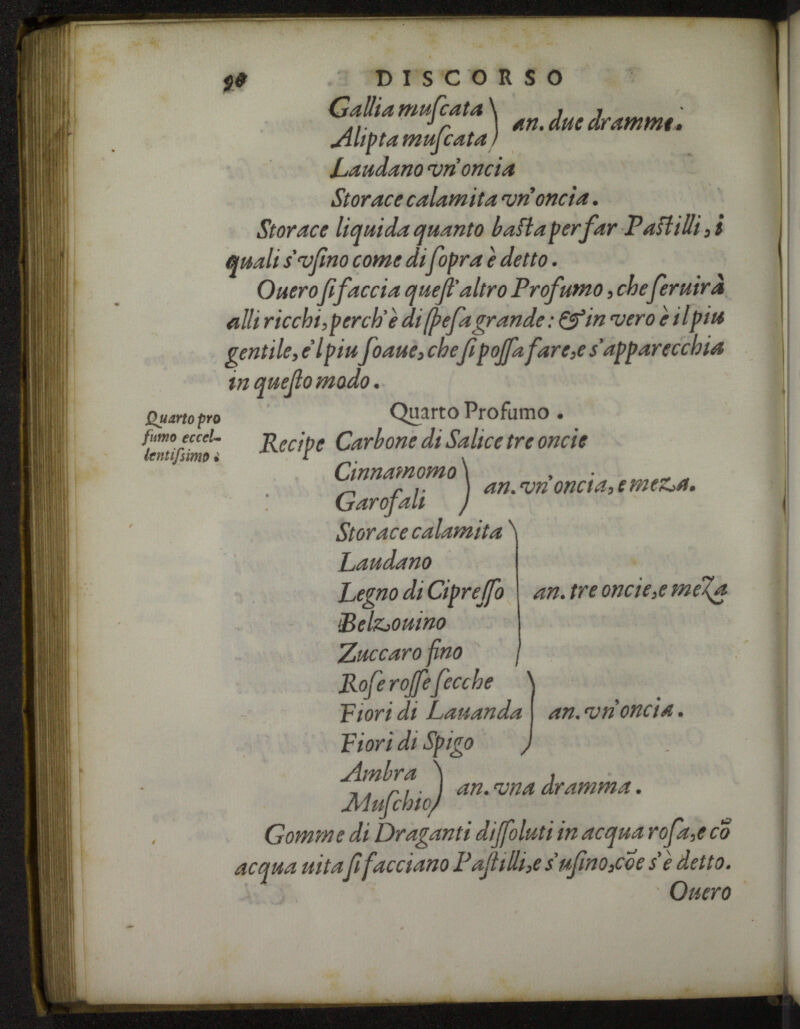 DISCORSO
Gallia muſcata
Alipta muſcata
an. due dramme.
Laudano vn'oncia
Storace calamita vn'oncia.
Storace liquida quanto baſta per far Paſtilli, i
quali s'vſino come di ſopra è detto.
Ouero ſi faccia queſt'altro Profumo, che ſeruirà
alli ricchi, perch'è di ſpeſa grande: & in vero è il piu
gentile, e'l piu ſoaue, che ſi poſſa fare, e s'apparecchia
in queſto modo.
Quarto pro
fumo eccel-
lentiſsimo.
Quarto Profumo.
Recipe Carbone di Salice tre oncie
Cinnamomo
Garofali
an. vn'oncia, e meza.
Storace calamita
Laudano
Legno di Cipreſſo
Belzouino
Zuccaro fino
an. tre oncie, e meza
Roſe roſſe ſecche
Fiori di Lauanda
Fiori di Spigo
an. vn'oncia.
Ambra
Muſchio
an. vna dramma.
Gomme di Draganti diſſoluti in acqua roſa, e cō
acqua uita ſi facciano Paſtilli, e s'uſino, cōe s'è detto.
Ouero